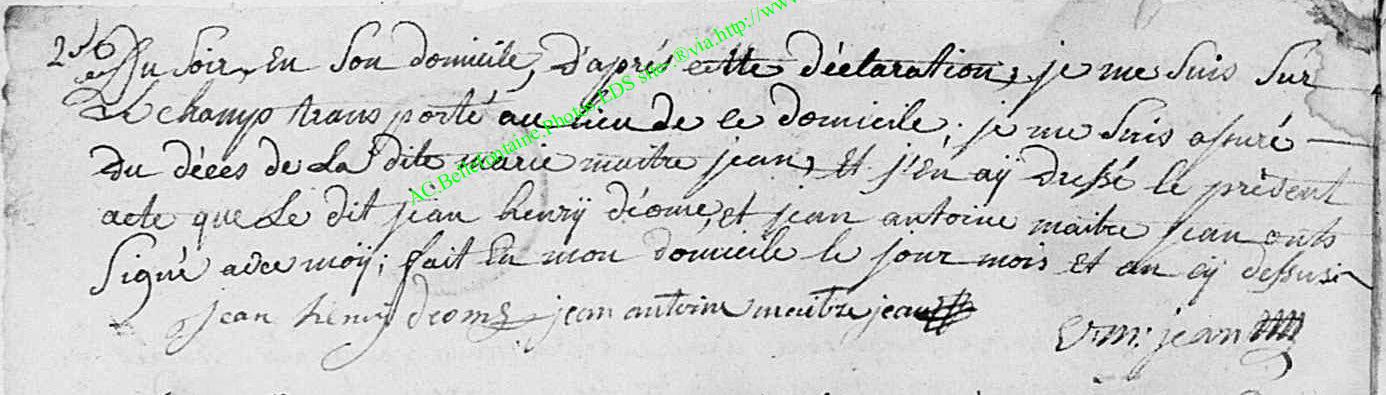 Du Soir, En Son domicile, D'aprés cette déclaration, je me Suis Sur
Le champ transporté au lieu de ce domicile; je me Suis assuré
Du décés de La dite marie maitre jean, Et j'En aÿ Dressé le présent
acte que Le dit jean henrÿ déome, et jean antoine maitre jean onts
Signé avec moÿ; fait En mon domicile le jour mois Et an cÿ dessus
jean henrÿ deome jean antoine maitre jean
m: jean
AC.Bellefontaine.Photos.EDS site:®via.http://www.